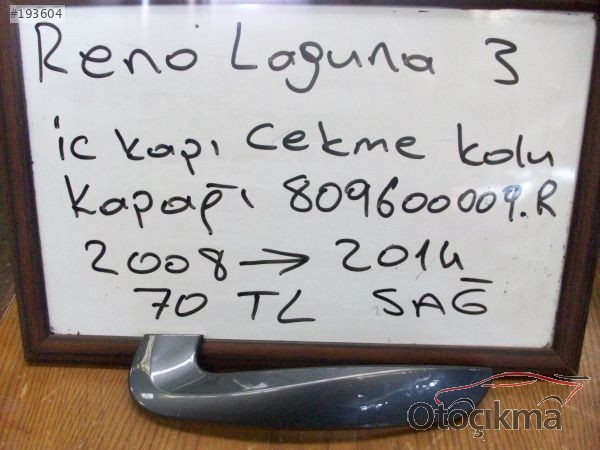 #193604
Reno Laguna 3
ic kapı Cekme kolu
Kapağı 809600009.R
2008 → 2014
70 TL SAĞ
Otoçıkma